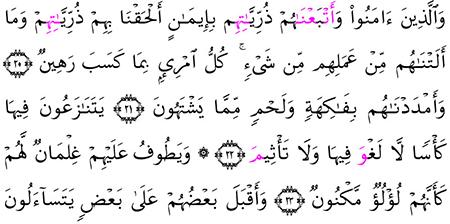 وَالَّذِينَ ءَامَنُواْ وَأَتْبَعْنَٰهُمْ ذُرِّيَّٰتِهِم بِإِيمَٰنٍ أَلْحَقْنَا بِهِمْ ذُرِّيَّٰتِهِمْ وَمَا
أَلَتْنَٰهُم مِّنْ عَمَلِهِم مِّن شَيْءٍ ۚ كُلُّ امْرِيِٕۭ بِمَا كَسَبَ رَهِينٌ ٢٠
وَأَمْدَدْنَٰهُم بِفَٰكِهَةٍ وَلَحْمٍ مِّمَّا يَشْتَهُونَ ٢١ يَتَنَٰزَعُونَ فِيهَا
كَأْسًا لَّا لَغْوَ فِيهَا وَلَا تَأْثِيمَ ٢٢ ۞ وَيَطُوفُ عَلَيْهِمْ غِلْمَانٌ لَّهُمْ
كَأَنَّهُمْ لُؤْلُؤٌ مَّكْنُونٌ ٢٣ وَأَقْبَلَ بَعْضُهُمْ عَلَىٰ بَعْضٍ يَتَسَآءَلُونَ